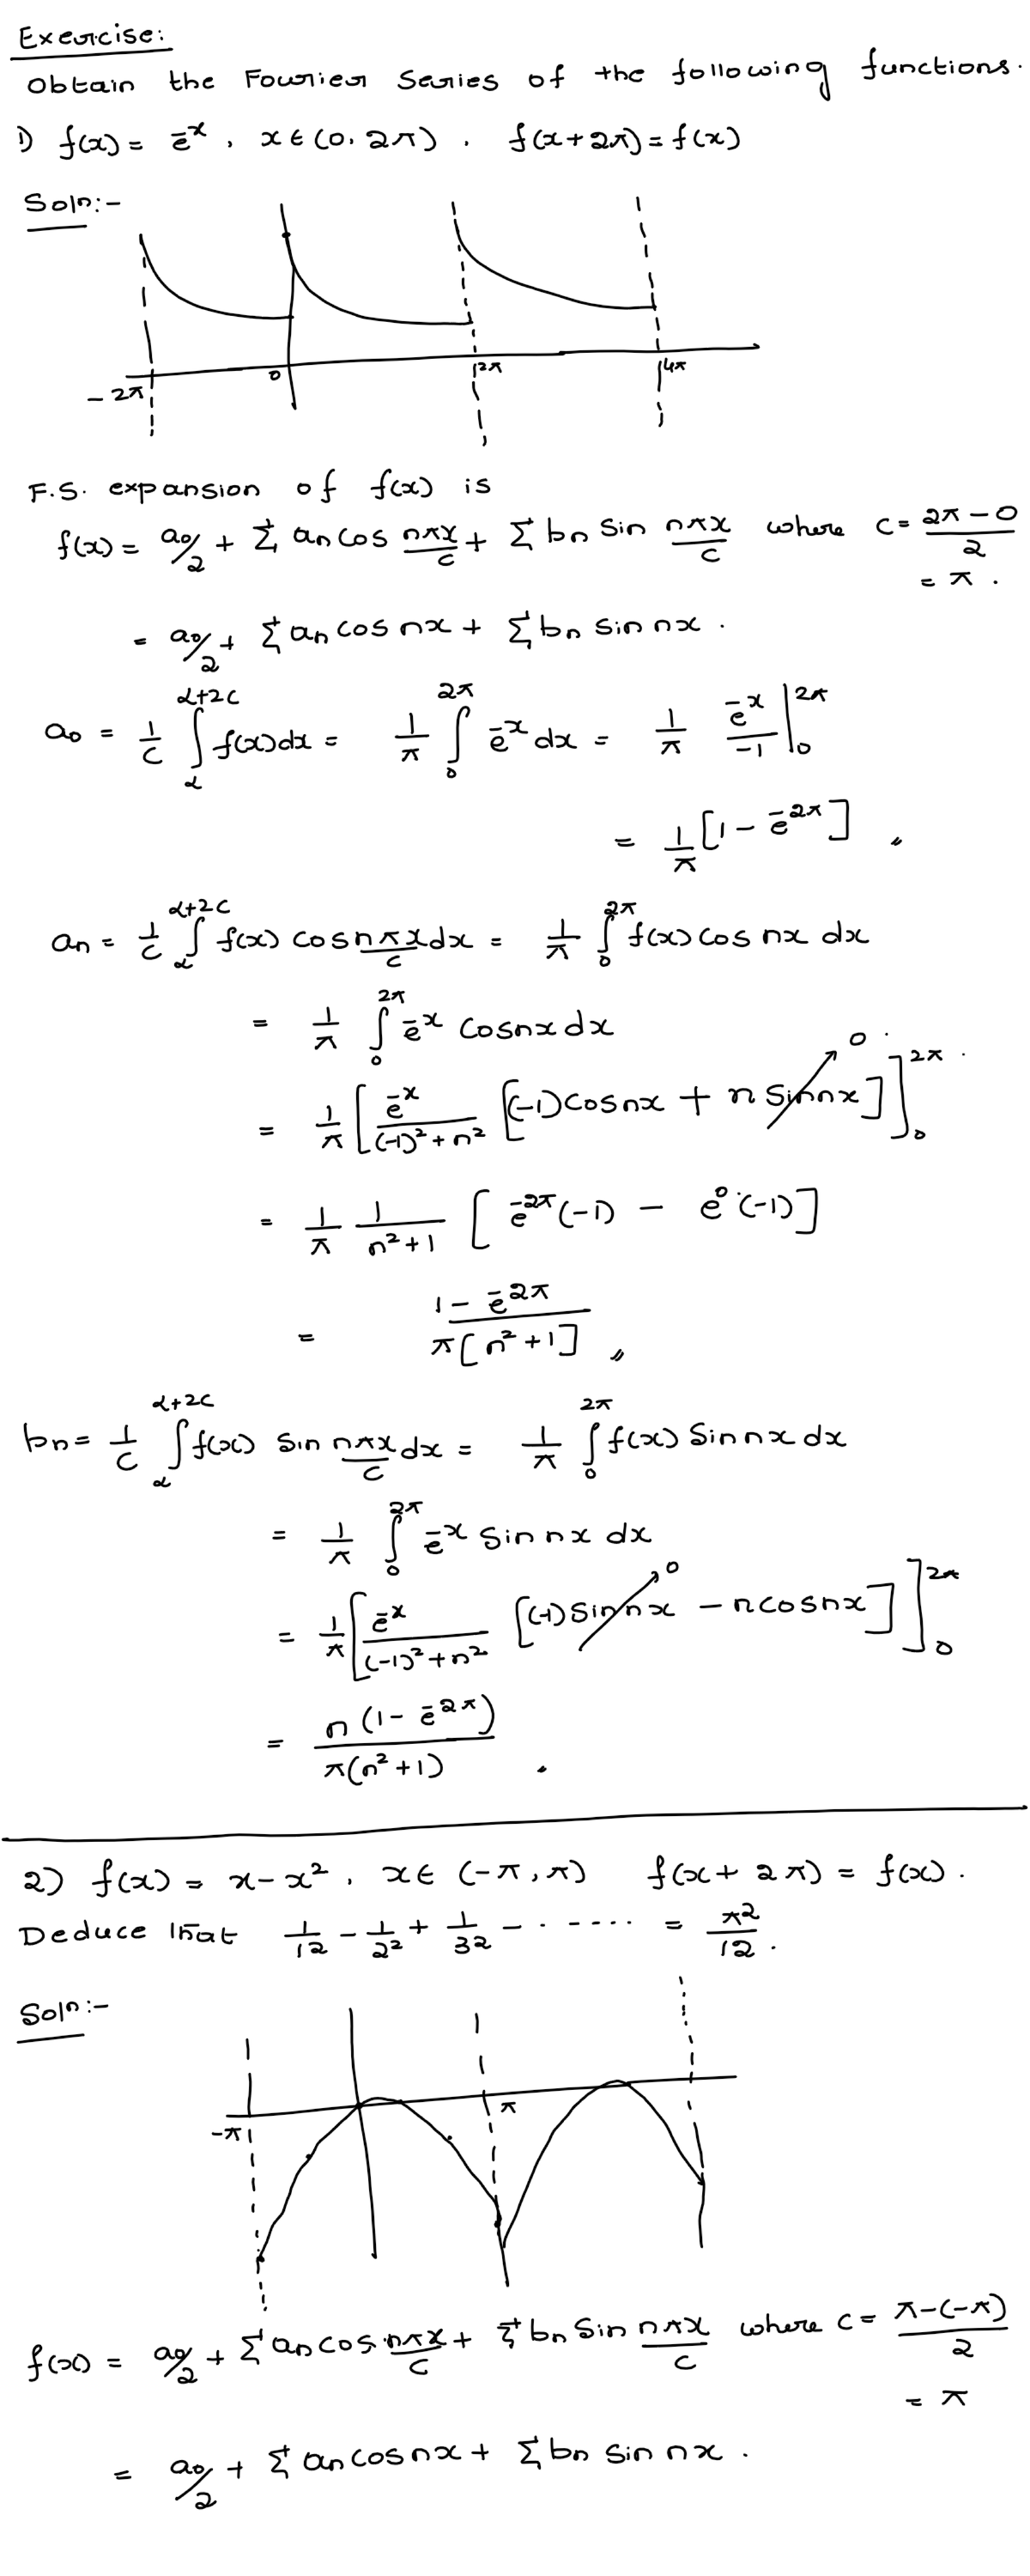 Exercise:
Obtain the Fourier Series of the following functions.
1) f(x) = e^{-x}, x ∈ (0, 2π), f(x+2π) = f(x)
Soln:-
-2π 0 2π 4π
F.S. expansion of f(x) is
f(x) = a0/2 + Σ an cos nπx/c + Σ bn sin nπx/c where c = (2π - 0)/2
= π.
= a0/2 + Σ an cos nx + Σ bn sin nx.
a0 = 1/c ∫_α^{α+2c} f(x)dx = 1/π ∫_0^{2π} e^{-x} dx = 1/π e^{-x}/-1 |_0^{2π}
= 1/π [1 - e^{-2π}]
an = 1/c ∫_α^{α+2c} f(x) cos nπx/c dx = 1/π ∫_0^{2π} f(x) cos nx dx
= 1/π ∫_0^{2π} e^{-x} cos nx dx
= 1/π [ e^{-x}/((-1)²+n²) [(-1)cos nx + n sin nx] ]_0^{2π} 0
= 1/π 1/(n²+1) [ e^{-2π}(-1) - e^0(-1) ]
= (1 - e^{-2π})/(π[n²+1])
bn = 1/c ∫_α^{α+2c} f(x) sin nπx/c dx = 1/π ∫_0^{2π} f(x) Sin nx dx
= 1/π ∫_0^{2π} e^{-x} sin nx dx
= 1/π [ e^{-x}/((-1)²+n²) [(-1) sin nx - n cos nx] ]_0^{2π} 0
= n(1 - e^{-2π})/(π(n²+1)).
2) f(x) = x - x², x ∈ (-π, π) f(x + 2π) = f(x).
Deduce that 1/1² - 1/2² + 1/3² - ...... = π²/12.
Soln:-
-π π
f(x) = a0/2 + Σ an cos nπx/c + Σ bn Sin nπx/c where c = (π-(-π))/2
= π
= a0/2 + Σ an cos nx + Σ bn sin nx.